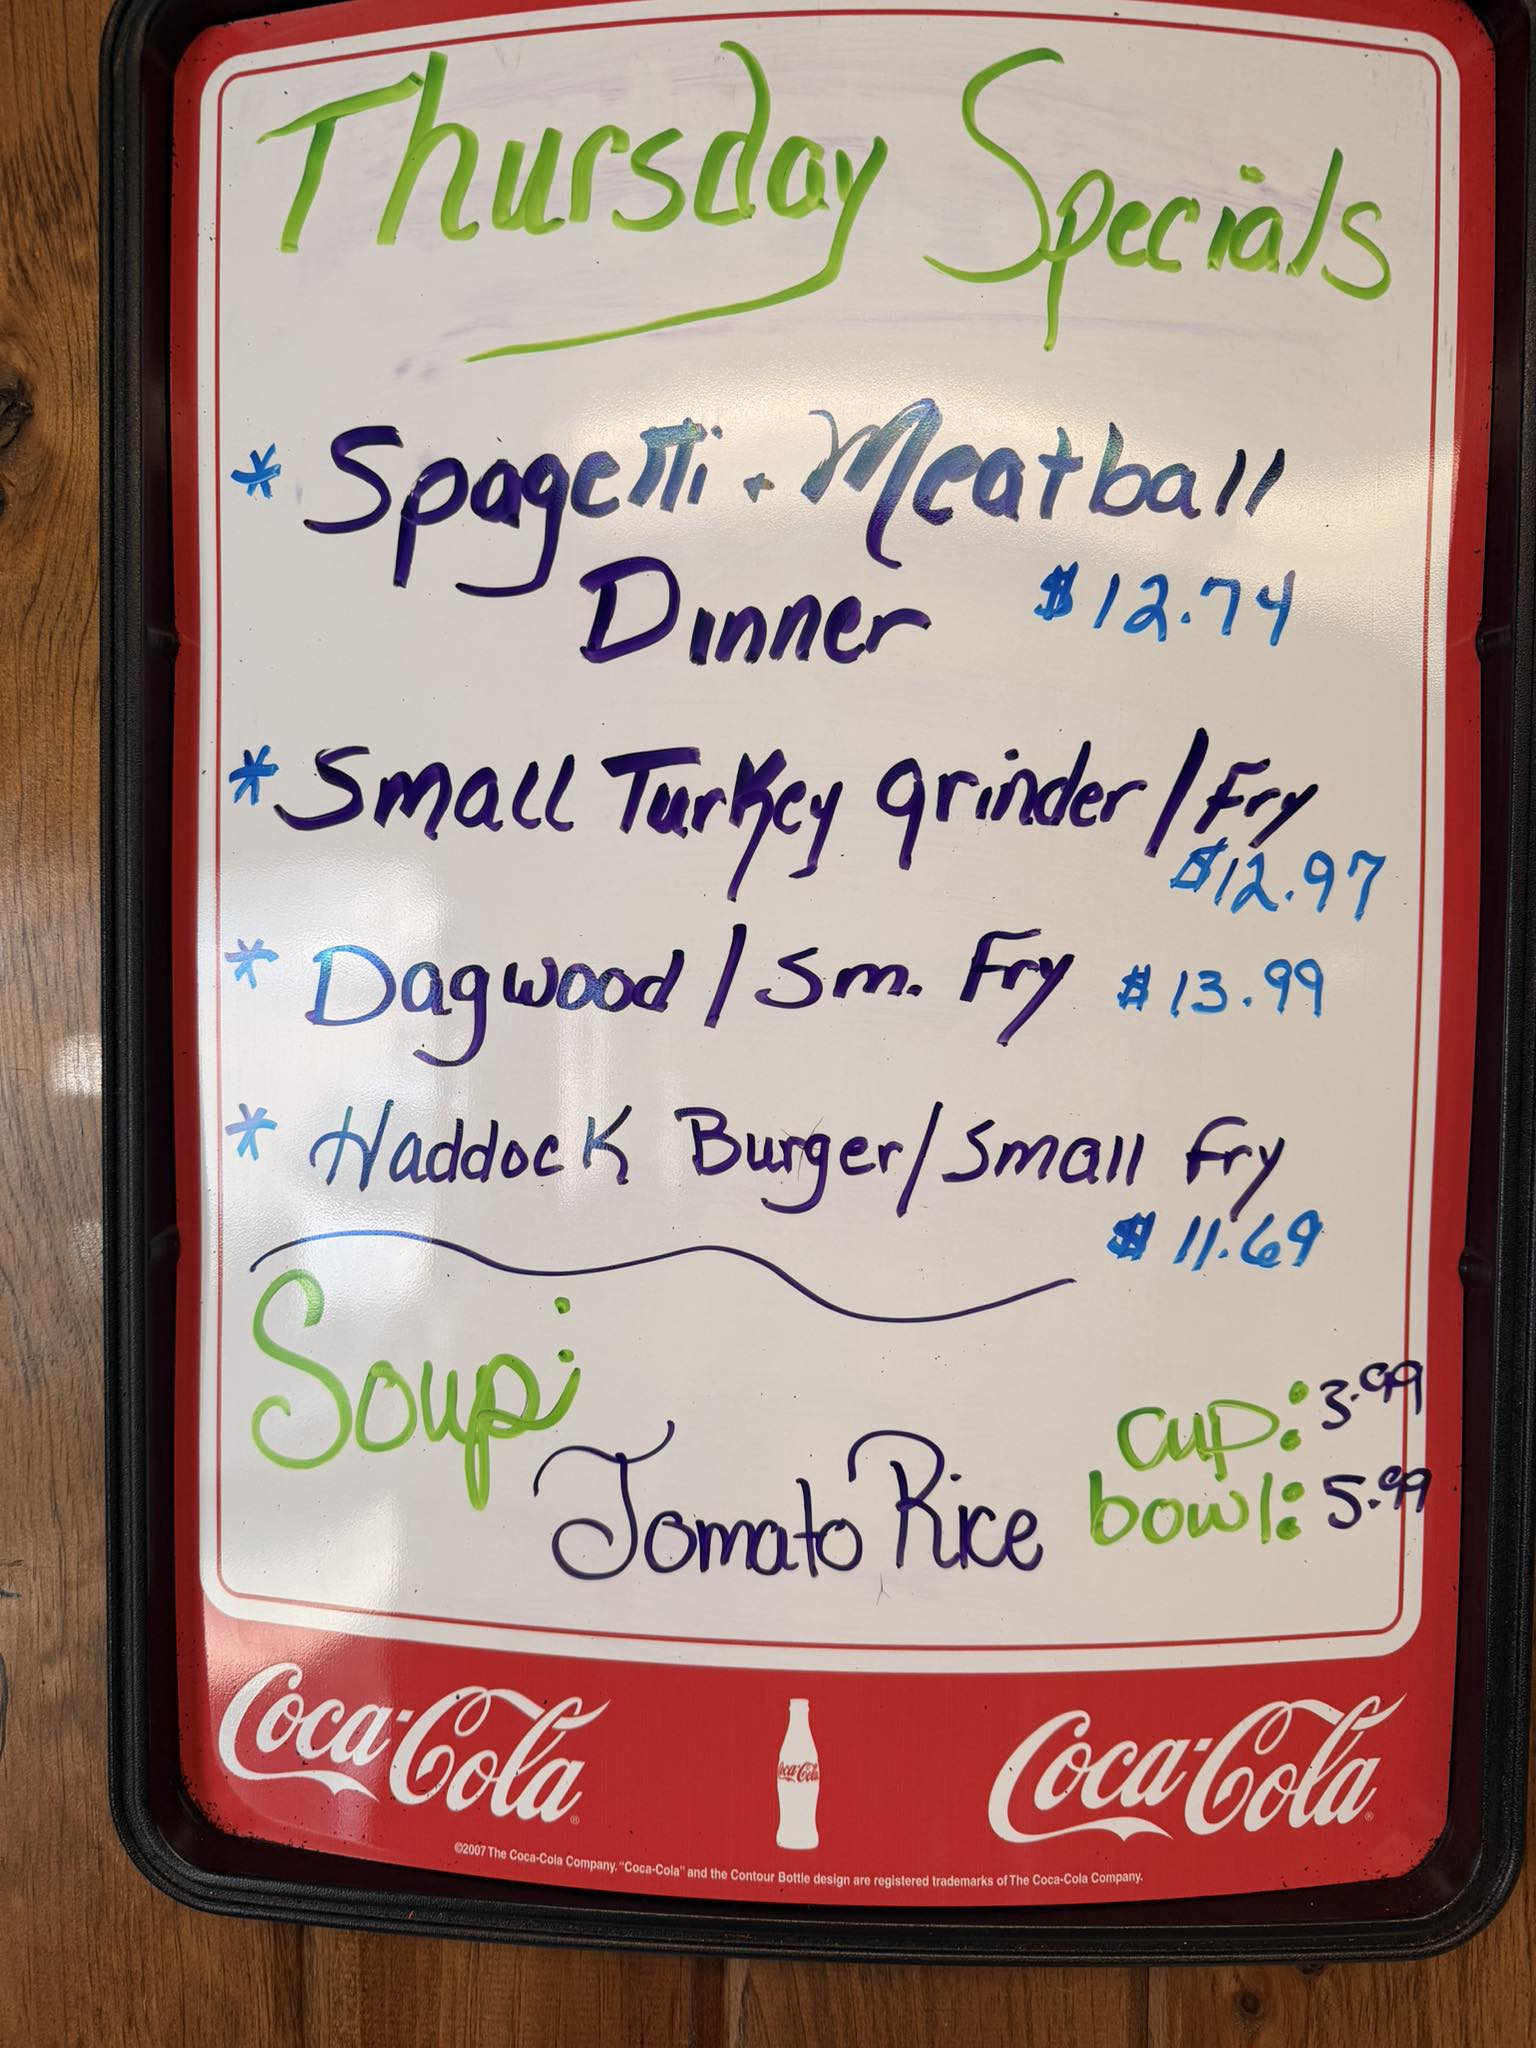 Thursday Specials
* Spagetti + Meatball
Dinner $12.74
* Small Turkey grinder / Fry
$12.97
* Dagwood / Sm. Fry $13.99
* Haddock Burger / Small Fry
$11.69
Soup:
cup: 3.99
Tomato Rice bowl: 5.99
Coca-Cola Coca-Cola Coca-Cola
©2007 The Coca-Cola Company. "Coca-Cola" and the Contour Bottle design are registered trademarks of The Coca-Cola Company.